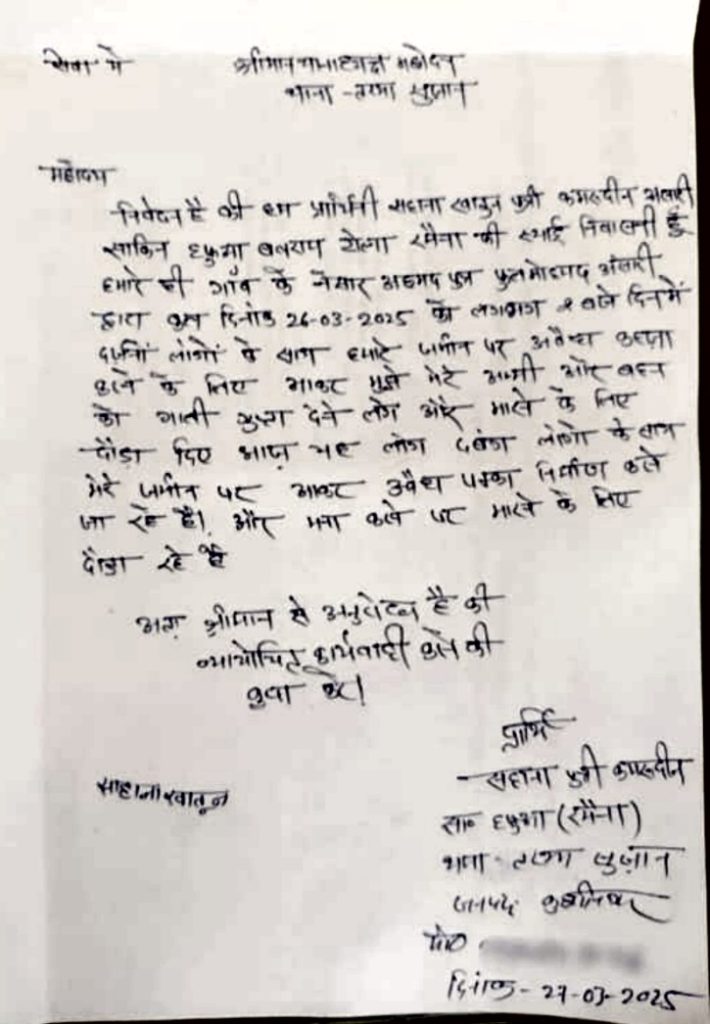 सेवा में श्रीमान थानाध्यक्ष महोदय
थाना - तरया सुजान
महोदय
निवेदन है की प्रार्थिनी सहाना खातुन पुत्री कमरुदीन अंसारी
साकिन हफुआ टोला रमैना की स्थाई निवासनी हूँ
हमारे ही गाँव के नेसार अहमद पुत्र फुलमोहम्मद अंसारी
द्वारा कल दिनांक 26-03-2025 को लगभग बजे दिन में
दर्जनों लोगों के साथ हमारे जमीन पर अवैध कब्जा
करने के लिए आकर मुझे मेरे अम्मी और बहन
को गाली गुप्ता देने लगे और मारने के लिए
दौड़ा दिए आज यह लोग दबंग लोगों के साथ
मेरे जमीन पर आकर अवैध पक्का निर्माण करते
जा रहे है। और मना करने पर मारने के लिए
दौड़ा रहे है
अतः श्रीमान से अनुवेदन है की
न्यायोचित कार्यवाही करने की
कृपा करे।
प्रार्थि
सहाना पुत्री कमरुदीन
साहाना खातून
सा० हफुआ (रमैना)
थाना - तरया सुजान
जनपद कुशीनगर
मो०
दिनांक - 27-03-2025